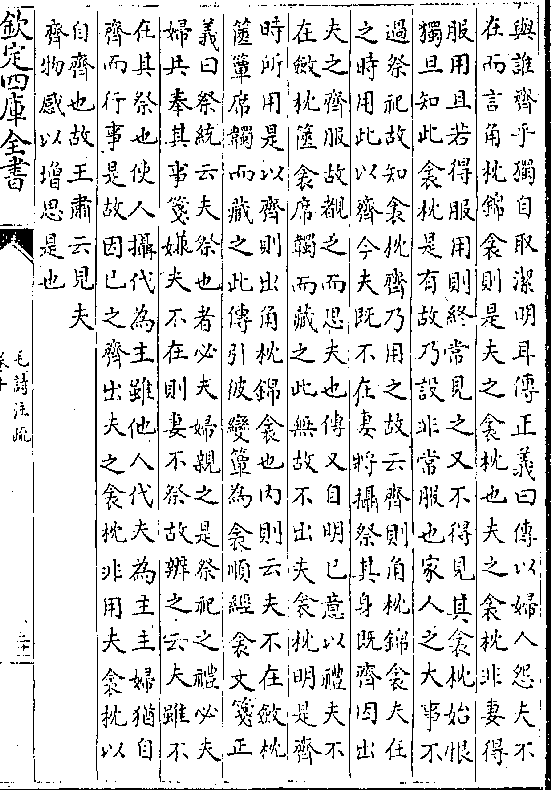 與誰齊乎獨自取潔明耳傳正義曰傳以婦人怨夫不
在而言角枕錦衾則是夫之衾枕也夫之衾枕非妻得
服用且若得服用則終常見之又不得見其衾枕始恨
獨旦知此衾枕是有故乃設非常服也家人之大事不
過祭祀故知衾枕齊乃用之故云齊則角枕錦衾夫在
之時用此以齊今夫既不在妻將攝祭其身既齊因出
夫之齊服故覩之而思夫也傳又自明已意以禮夫不
在斂枕篋衾席韣而藏之此無故不出夫衾枕明是齊
時所用是以齊則出角枕錦衾也內則云夫不在斂枕
篋簟席韣而藏之此傳引彼變簟為衾順經衾文箋正
義曰祭統云夫祭也者必夫婦親之是祭祀之禮必夫
婦共奉其事箋嫌夫不在則妻不祭故辨之云夫雖不
在其祭也使人攝代為主雖他人代夫為主主婦猶自
齊而行事是故因已之齊出夫之衾枕非用夫衾枕以
自齊也故王肅云見夫
齊物感以增思是也
欽定四庫全書
毛詩注疏
卷十